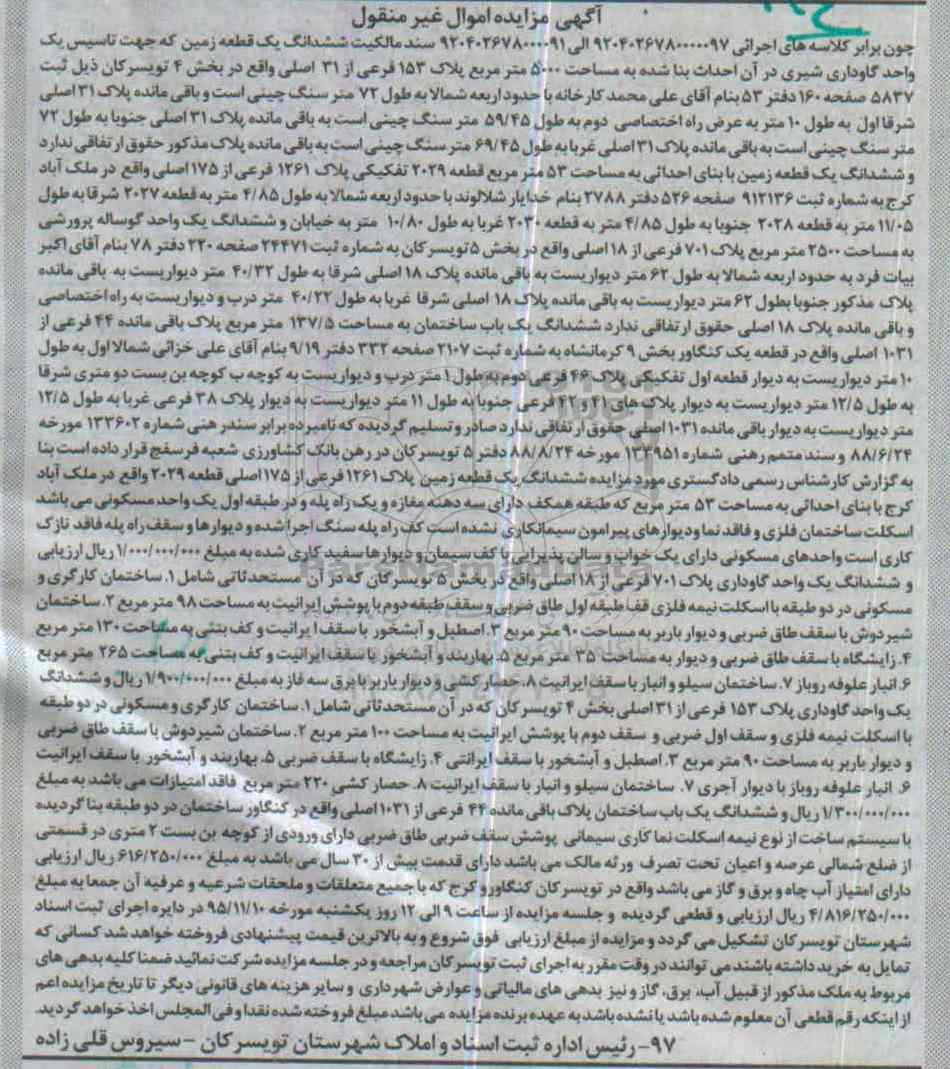 آگهی مزایده اموال غیر منقول
چون برابر کلاسه های اجرائی ۹۲۰۴۰۲۶۷۸۰۰۰۰۰۹۷ الی ۹۲۰۴۰۲۶۷۸۰۰۰۰۰۹۱ سند مالکیت ششدانگ یک قطعه زمین که جهت تاسیس یک
واحد گاوداری شیری در آن احداث بنا شده به مساحت ۵۰۰۰ متر مربع پلاک ۱۵۳ فرعی از ۳۱ اصلی واقع در بخش ۴ تویسرکان ذیل ثبت
۵۸۳۷ صفحه ۱۶۰ دفتر ۵۳ بنام آقای علی محمد کارخانه با حدود اربعه شمالا به طول ۷۲ متر سنگ چینی است و باقی مانده پلاک ۳۱ اصلی
شرقا اول به طول ۱۰ متر به عرض راه اختصاصی دوم به طول ۵۹/۴۵ متر سنگ چینی است به باقی مانده پلاک ۳۱ اصلی جنوبا به طول ۷۲
متر سنگ چینی است به باقی مانده پلاک ۳۱ اصلی غربا به طول ۶۹/۴۵ متر سنگ چینی است به باقی مانده پلاک مذکور حقوق ارتفاقی ندارد
و ششدانگ یک قطعه زمین با بنای احداثی به مساحت ۵۳ متر مربع قطعه ۲۰۲۹ تفکیکی پلاک ۱۲۶۱ فرعی از ۱۷۵ اصلی واقع در ملک آباد
کرج به شماره ثبت ۹۱۲۱۳۶ صفحه ۵۲۶ دفتر ۲۷۸۸ بنام خدایار شلالوند با حدود اربعه شمالا به طول ۴/۸۵ متر به قطعه ۲۰۲۷ شرقا به طول
۱۱/۰۵ متر به قطعه ۲۰۲۸ جنوبا به طول ۴/۸۵ متر به قطعه ۲۰۳۰ غربا به طول ۱۰/۸۰ متر به خیابان و ششدانگ یک واحد گوساله پرورشی
به مساحت ۲۵۰۰ متر مربع پلاک ۷۰۱ فرعی از ۱۸ اصلی واقع در بخش ۵ تویسرکان به شماره ثبت ۲۴۴۷۱ صفحه ۲۲۰ دفتر ۷۸ بنام آقای اکبر
بیات فرد به حدود اربعه شمالا به طول ۶۲ متر دیواریست به باقی مانده پلاک ۱۸ اصلی شرقا به طول ۴۰/۳۲ متر دیواریست به باقی مانده
پلاک مذکور جنوبا بطول ۶۲ متر دیواریست به باقی مانده پلاک ۱۸ اصلی شرقا غربا به طول ۴۰/۲۲ متر درب و دیواریست به راه اختصاصی
و باقی مانده پلاک ۱۸ اصلی حقوق ارتفاقی ندارد ششدانگ یک باب ساختمان به مساحت ۱۳۷/۵ متر مربع پلاک باقی مانده ۴۴ فرعی از
۱۰۳۱ اصلی واقع در قطعه یک کنگاور بخش ۹ کرمانشاه به شماره ثبت ۲۱۰۷ صفحه ۳۳۲ دفتر ۹/۱۹ بنام آقای علی خزائی شمالا اول به طول
۱۰ متر دیواریست به دیوار قطعه اول تفکیکی پلاک ۴۶ فرعی دوم به طول ۱ متر درب و دیواریست به کوچه ب کوچه بن بست دو متری شرقا
به طول ۱۲/۵ متر دیواریست به دیوار پلاک های ۴۱ و ۴۲ فرعی جنوبا به طول ۱۱ متر دیواریست به دیوار پلاک ۳۸ فرعی غربا به طول ۱۲/۵
متر دیواریست به دیوار باقی مانده ۱۰۳۱ اصلی حقوق ارتفاقی ندارد صادر و تسلیم گردیده که نامبرده برابر سند رهنی شماره ۱۳۳۶۰۲ مورخه
۸۸/۶/۲۴ و سند متمم رهنی شماره ۱۳۳۹۵۱ مورخه ۸۸/۸/۲۴ دفتر ۵ تویسرکان در رهن بانک کشاورزی شعبه فرسفج قرار داده است بنا
به گزارش کارشناس رسمی دادگستری مورد مزایده ششدانگ یک قطعه زمین پلاک ۱۲۶۱ فرعی از ۱۷۵ اصلی قطعه ۲۰۲۹ واقع در ملک آباد
کرج با بنای احداثی به مساحت ۵۳ متر مربع که طبقه همکف دارای سه دهنه مغازه و یک راه پله و در طبقه اول یک واحد مسکونی می باشد
اسکلت ساختمان فلزی و فاقد نما و دیوارهای پیرامون سیمانکاری نشده است کف راه پله سنگ اجرا شده و دیوارها و سقف راه پله فاقد نازک
کاری است واحدهای مسکونی دارای یک خواب و سالن پذیرایی با کف سیمان و دیوارها سفید کاری شده به مبلغ ۱/۰۰۰/۰۰۰/۰۰۰ ریال ارزیابی
و ششدانگ یک واحد گاوداری پلاک ۷۰۱ فرعی از ۱۸ اصلی واقع در بخش ۵ تویسرکان که در آن مستحدثاتی شامل ۱. ساختمان کارگری و
مسکونی در دو طبقه با اسکلت نیمه فلزی قف طبقه اول طاق ضربی و سقف طبقه دوم با پوشش ایرانیت به مساحت ۹۸ متر مربع ۲. ساختمان
شیردوش با سقف طاق ضربی و دیوار باربر به مساحت ۹۰ متر مربع ۳. اصطبل و آبشخور با سقف ایرانیت و کف بتنی به مساحت ۱۳۰ متر مربع
۴. زایشگاه با سقف طاق ضربی و دیوار به مساحت ۳۵ متر مربع ۵. بهاربند و آبشخور با سقف ایرانیت و کف بتنی به مساحت ۲۶۵ متر مربع
۶. انبار علوفه روباز ۷. ساختمان سیلو و انبار با سقف ایرانیت ۸. حصار کشی و دیوار باربر با برق سه فاز به مبلغ ۱/۹۰۰/۰۰۰/۰۰۰ ریال و ششدانگ
یک واحد گاوداری پلاک ۱۵۳ فرعی از ۳۱ اصلی بخش ۴ تویسرکان که در آن مستحدثاتی شامل ۱. ساختمان کارگری و مسکونی در دو طبقه
با اسکلت نیمه فلزی و سقف اول ضربی و سقف دوم با پوشش ایرانیت به مساحت ۱۰۰ متر مربع ۲. ساختمان شیردوش با سقف طاق ضربی
و دیوار باربر به مساحت ۹۰ متر مربع ۳. اصطبل و آبشخور با سقف ایرانتی ۴. زایشگاه با سقف ضربی ۵. بهاربند و آبشخور با سقف ایرانیت
۶. انبار علوفه روباز با دیوار آجری ۷. ساختمان سیلو و انبار با سقف ایرانیت ۸. حصار کشی ۲۲۰ متر مربع فاقد امتیازات می باشد به مبلغ
۱/۳۰۰/۰۰۰/۰۰۰ ریال و ششدانگ یک باب ساختمان پلاک باقی مانده ۴۴ فرعی از ۱۰۳۱ اصلی واقع در کنگاور ساختمان در دو طبقه بنا گردیده
با سیستم ساخت از نوع نیمه اسکلت نما کاری سیمانی پوشش سقف ضربی طاق ضربی دارای ورودی از کوچه بن بست ۲ متری در قسمتی
از ضلع شمالی عرصه و اعیان تحت تصرف ورثه مالک می باشد دارای قدمت بیش از ۳۰ سال می باشد به مبلغ ۶۱۶/۲۵۰/۰۰۰ ریال ارزیابی
دارای امتیاز آب چاه و برق و گاز می باشد واقع در تویسرکان کنگاور و کرج که با جمیع متعلقات و ملحقات شرعیه و عرفیه آن جمعا به مبلغ
۴/۸۱۶/۲۵۰/۰۰۰ ریال ارزیابی و قطعی گردیده و جلسه مزایده از ساعت ۹ الی ۱۲ روز یکشنبه مورخه ۹۵/۱۱/۱۰ در دایره اجرای ثبت اسناد
شهرستان تویسرکان تشکیل می گردد و مزایده از مبلغ ارزیابی فوق شروع و به بالاترین قیمت پیشنهادی فروخته خواهد شد کسانی که
تمایل به خرید داشته باشند می توانند در وقت مقرر به اجرای ثبت تویسرکان مراجعه و در جلسه مزایده شرکت نمائید ضمنا کلیه بدهی های
مربوط به ملک مذکور از قبیل آب، برق، گاز و نیز بدهی های مالیاتی و عوارض شهرداری و سایر هزینه های قانونی دیگر تا تاریخ مزایده اعم
از اینکه رقم قطعی آن معلوم شده باشد یا نشده باشد به عهده برنده مزایده می باشد مبلغ فروخته شده نقدا و فی المجلس اخذ خواهد گردید.
۹۷- رئیس اداره ثبت اسناد و املاک شهرستان تویسرکان - سیروس قلی زاده